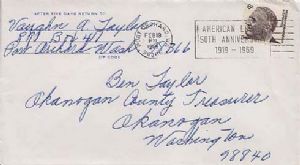 AFTER FIVE DAYS RETURN TO
Vaughn A. Taylor
Port Orchard Wash
ZIP CODE
PORT ORCHARD
FEB 19
PM
AMERICAN
50TH ANNIVER
1919 - 1969
6
Ben Taylor
Okanogan County Treasurer
Okanogan
Washington
98840